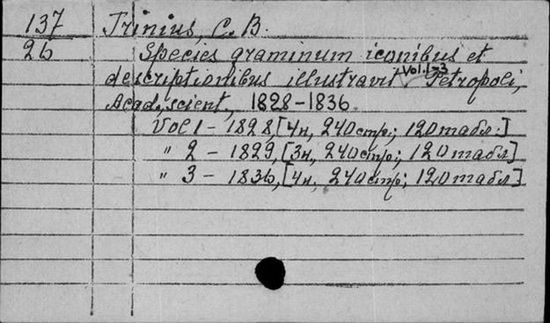 137 Trinius, C. B.
26 Species graminum iconibus et
descriptionibus illustravit Vol. 1-3 Petropoli,
Acad. scient, 1828-1836
Vol 1 - 1828, [4н, 240стр; 120табл.]
" 2 - 1829, [3н, 240стр; 120табл]
" 3 - 1836, [4н, 240стр; 120табл]